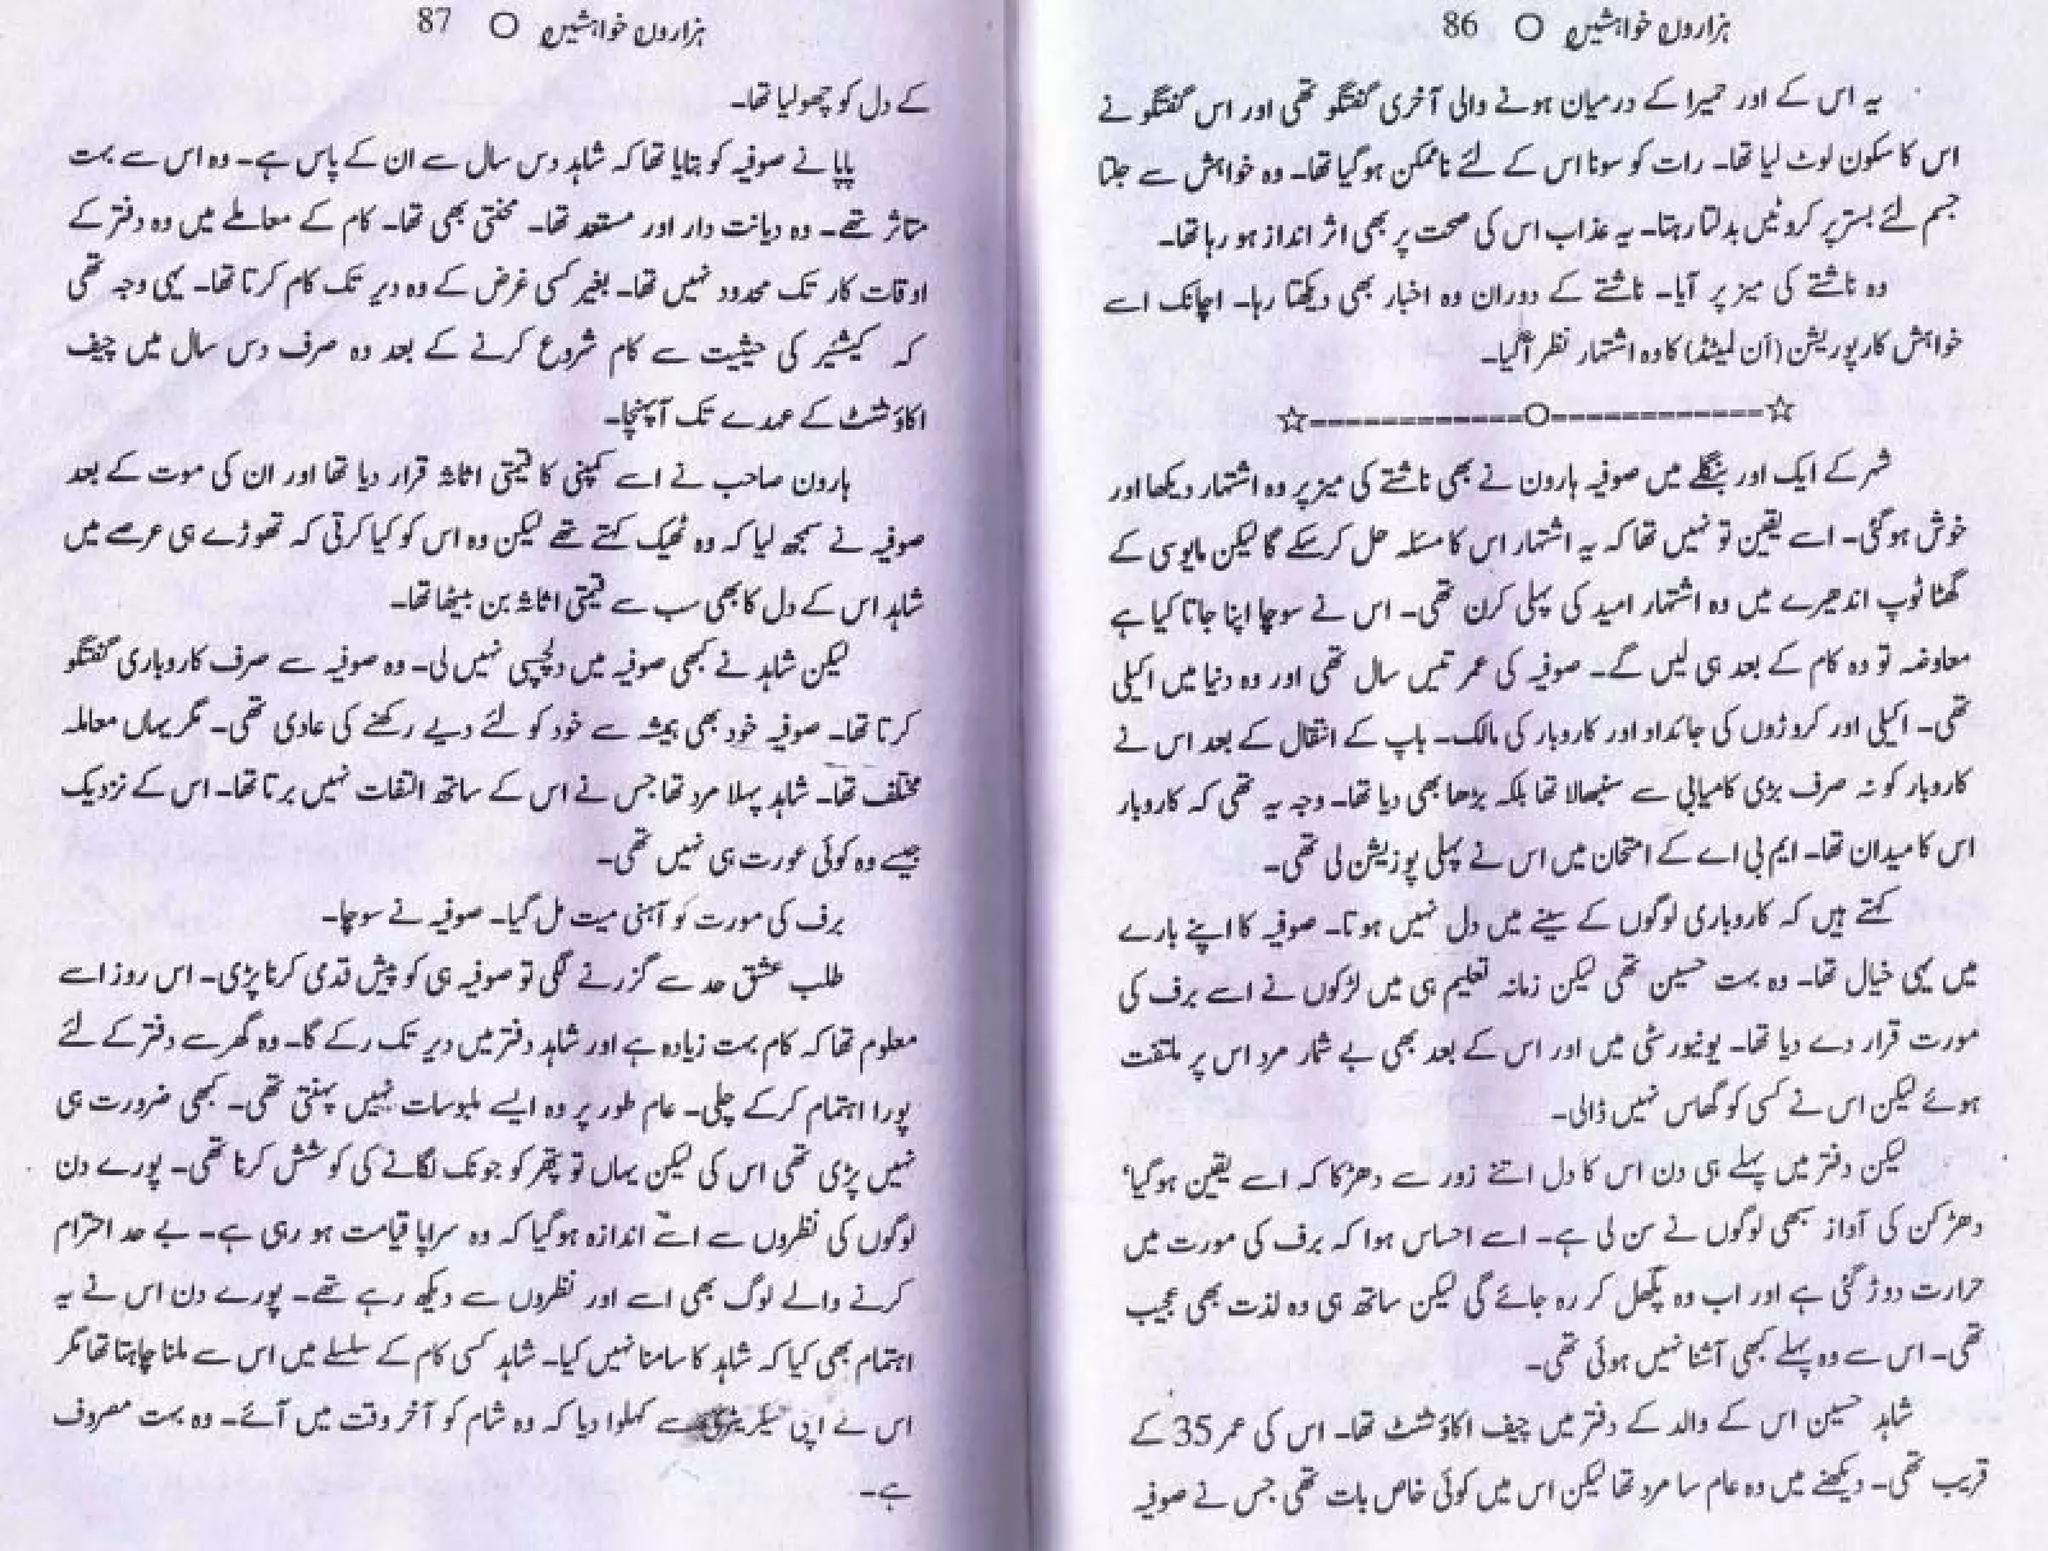 ہزاروں خواہشیں O 86
یہ اس کے اور حمیرا کے درمیان ہونے والی آخری گفتگو تھی اور اس گفتگو نے
اس کا سکون لوٹ لیا تھا۔ رات کو سونا اس کے لئے ناممکن ہوگیا تھا۔ وہ خواہش سے جلتا
جسم لئے بستر پر کروٹیں بدلتا رہتا۔ یہ عذاب اس کی صحت پر بھی اثر انداز ہو رہا تھا۔
وہ ناشتے کی میز پر آیا۔ ناشتے کے دوران وہ اخبار بھی دیکھتا رہا۔ اچانک اسے
خواہش کارپوریشن (اَن لمیٹڈ) کا وہ اشتہار نظر آگیا۔
☆------------O------------☆
شہر کے ایک اور بنگلے میں صوفیہ ہارون نے بھی ناشتے کی میز پر وہ اشتہار دیکھا اور
خوش ہوگئی۔ اسے یقین تو نہیں تھا کہ یہ اشتہار اس کا مسئلہ حل کرسکے گا لیکن مایوسی کے
گھٹا ٹوپ اندھیرے میں وہ اشتہار امید کی پہلی کرن تھی۔ اس نے سوچا اپنا جاتا کیا ہے
معاوضہ تو وہ کام کے بعد ہی لیں گے۔ صوفیہ کی عمر تیس سال تھی اور وہ دنیا میں اکیلی
تھی۔ اکیلی اور کروڑوں کی جائداد اور کاروبار کی مالک۔ باپ کے انتقال کے بعد اس نے
کاروبار کو نہ صرف بڑی کامیابی سے سنبھالا تھا بلکہ بڑھا بھی دیا تھا۔ وجہ یہ تھی کہ کاروبار
اس کا میدان تھا۔ ایم بی اے کے امتحان میں اس نے پہلی پوزیشن لی تھی۔
کہتے ہیں کہ کاروباری لوگوں کے سینے میں دل نہیں ہوتا۔ صوفیہ کا اپنے بارے
میں یہی خیال تھا۔ وہ بہت حسین تھی لیکن زمانہ تعلیم ہی میں لڑکوں نے اسے برف کی
مورت قرار دے دیا تھا۔ یونیورسٹی میں اور اس کے بعد بھی بے شمار مرد اس پر ملتفت
ہوئے لیکن اس نے کسی کو گھاس نہیں ڈالی۔
لیکن دفتر میں پہلے ہی دن اس کا دل اتنے زور سے دھڑکا کہ اسے یقین ہوگیا‘
دھڑکن کی آواز سبھی لوگوں نے سن لی ہے۔ اسے احساس ہوا کہ برف کی مورت میں
حرارت دوڑ گئی ہے اور اب وہ پگھل کر رہ جائے گی لیکن ساتھ ہی وہ لذت بھی عجیب
تھی۔ اس سے وہ پہلے کبھی آشنا نہیں ہوئی تھی۔
شاہد حسین اس کے والد کے دفتر میں چیف اکاؤنٹنٹ تھا۔ اس کی عمر 35 کے
قریب تھی۔ دیکھنے میں وہ عام سا مرد تھا لیکن اس میں کوئی خاص بات تھی جس نے صوفیہ
ہزاروں خواہشیں O 87
کے دل کو چھولیا تھا۔
پاپا نے صوفیہ کو بتایا تھا کہ شاہد دس سال سے ان کے پاس ہے۔ وہ اس سے بہت
متاثر تھے۔ وہ دیانت دار اور مستعد تھا۔ محنتی بھی تھا۔ کام کے معاملے میں وہ دفتر کے
اوقات کار تک محدود نہیں تھا۔ بغیر کسی غرض کے وہ دیر تک کام کرتا تھا۔ یہی وجہ تھی
کہ کیشیر کی حیثیت سے کام شروع کرنے کے بعد وہ صرف دس سال میں چیف
اکاؤنٹنٹ کے عہدے تک آپہنچا۔
ہارون صاحب نے اسے کمپنی کا قیمتی اثاثہ قرار دیا تھا اور ان کی موت کے بعد
صوفیہ نے سمجھ لیا کہ وہ ٹھیک کہتے تھے لیکن وہ اس کو کیا کرتی کہ تھوڑے ہی عرصے میں
شاہد اس کے دل کا بھی سب سے قیمتی اثاثہ بن بیٹھا تھا۔
لیکن شاہد نے کبھی صوفیہ میں دلچسپی نہیں لی۔ وہ صوفیہ سے صرف کاروباری گفتگو
کرتا تھا۔ صوفیہ خود بھی ہمیشہ سے خود کو لئے دیے رکھنے کی عادی تھی۔ مگر یہاں معاملہ
مختلف تھا۔ شاہد پہلا مرد تھا جس نے اس کے ساتھ التفات نہیں برتا تھا۔ اس کے نزدیک
جیسے وہ کوئی عورت ہی نہیں تھی۔
برف کی مورت کو آہنی میت مل گیا۔ صوفیہ نے سوچا۔
طلب عشق حد سے گزرنے لگی تو صوفیہ ہی کو پیش قدمی کرنا پڑی۔ اس روز اسے
معلوم تھا کہ کام بہت زیادہ ہے اور شاہد دفتر میں دیر تک رکے گا۔ وہ گھر سے دفتر کے لئے
پورا اہتمام کرکے چلی۔ عام طور پر وہ ایسے ملبوسات نہیں پہنتی تھی۔ کبھی ضرورت ہی
نہیں پڑی تھی اس کی لیکن یہاں تو پتھر کو جونک لگانے کی کوشش کرنا تھی۔ پورے دن
لوگوں کی نظروں سے اسے اندازہ ہوگیا کہ وہ سراپا قیامت ہو رہی ہے۔ بے حد احترام
کرنے والے لوگ بھی اسے اور نظروں سے دیکھ رہے تھے۔ پورے دن اس نے یہ
اہتمام بھی کیا کہ شاہد کا سامنا نہیں کیا۔ شاہد کسی کام کے سلسلے میں اس سے ملنا چاہتا تھا مگر
اس نے اپنی سے کہلوا دیا کہ وہ شام کو آخر وقت میں آئے۔ وہ بہت مصروف
ہے۔